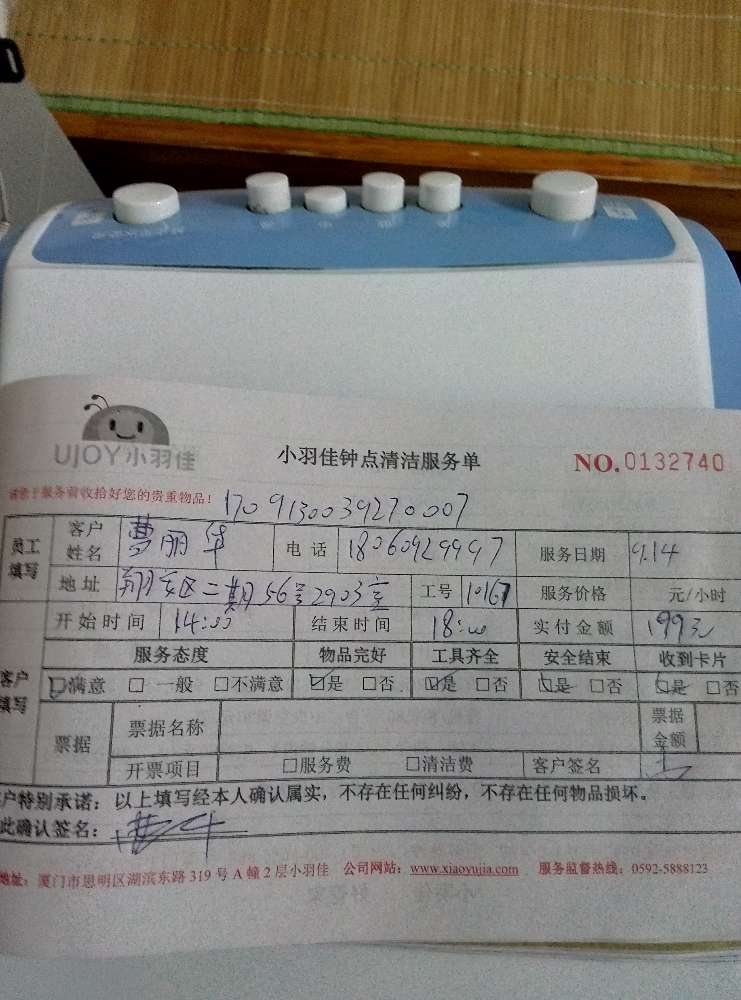 UJOY小羽佳
小羽佳钟点清洁服务单
NO.0132740
请您于服务前收拾好您的贵重物品!
1709130039270007
员工填写 客户姓名 曹丽华 电话 18060929997 服务日期 9.14
地址 翔安区二期56号2903室 工号 10167 服务价格 元/小时
开始时间 14:00 结束时间 18:00 实付金额 199元
客户填写 服务态度 物品完好 工具齐全 安全结束 收到卡片
☑满意 □一般 □不满意 ☑是 □否 ☑是 □否 ☑是 □否 ☑是 □否
票据 票据名称 票据金额
开票项目 □服务费 □清洁费 客户签名
客户特别承诺:以上填写经本人确认属实,不存在任何纠纷,不存在任何物品损坏。
此确认签名:
地址:厦门市思明区湖滨东路319号A幢2层小羽佳 公司网站:www.xiaoyujia.com 服务监督热线:0592-5888123